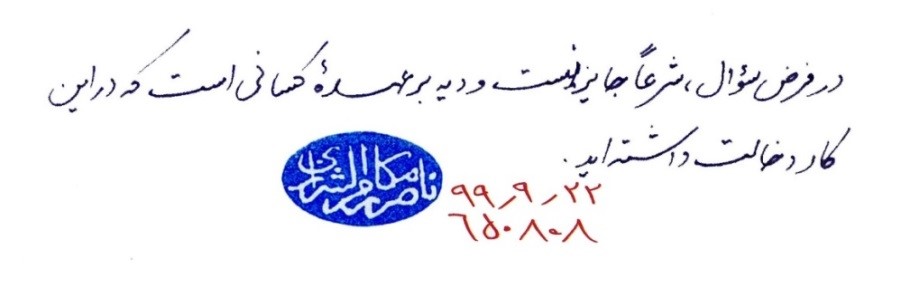 در فرض سؤال، شرعاً جایز نیست و دیه بر عهدهٔ کسانی است که در این
کار دخالت داشته‌اید.
ناصر مکارم الشیرازی
۹۹٫۹٫۲۲
۶۵۰۸۰۸